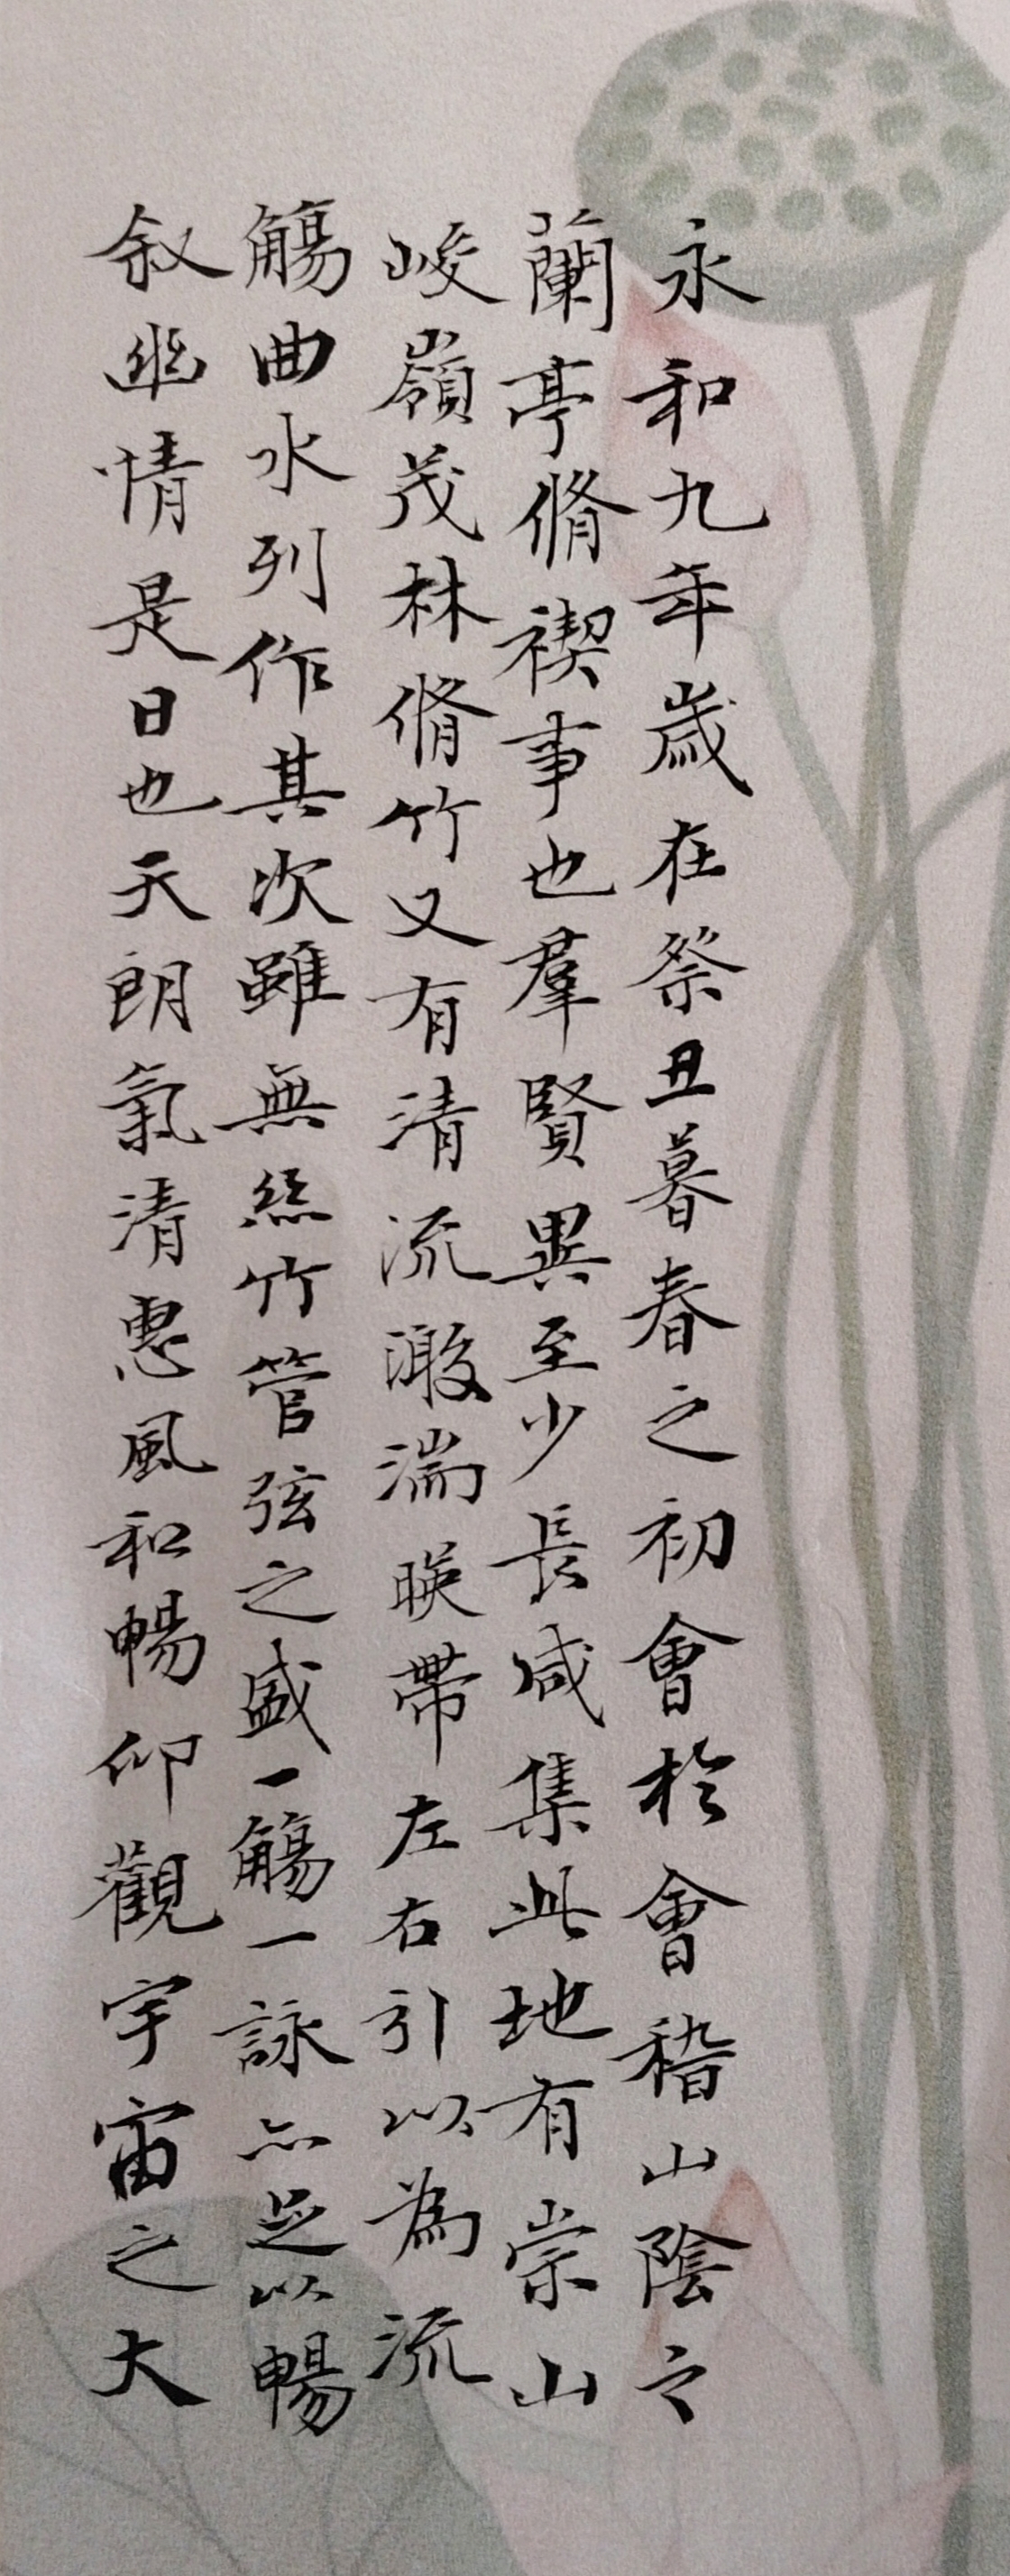 永和九年歲在癸丑暮春之初會於會稽山陰之
蘭亭脩禊事也羣賢畢至少長咸集此地有崇山
峻嶺茂林脩竹又有清流激湍暎帶左右引以為流
觴曲水列作其次雖無絲竹管弦之盛一觴一詠亦足以暢
叙幽情是日也天朗氣清惠風和暢仰觀宇宙之大